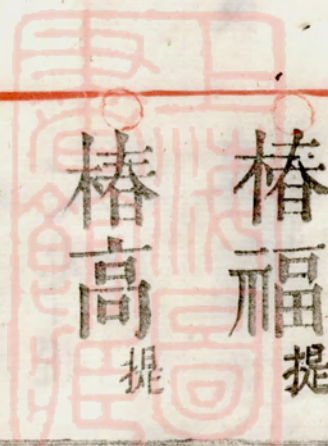 椿福提
椿高提